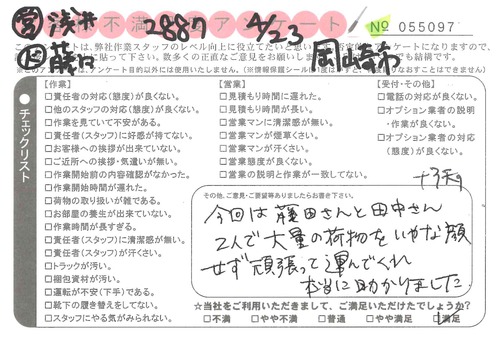 営 浅井 2887 4/23 岡崎市
不満 アンケート
№ 055097
チェックリスト
【作業】
□責任者の対応(態度)が良くない。
□他のスタッフの対応(態度)が良くない。
□作業を見ていて不安がある。
□責任者(スタッフ)に好感が持てない。
□お客様への挨拶が出来ていない。
□ご近所への挨拶・気遣いが無い。
□作業開始前の内容確認がなかった。
□作業開始時間が遅れた。
□荷物の取り扱いが雑である。
□お部屋の養生が出来ていない。
□作業時間が長すぎる。
□責任者(スタッフ)に清潔感が無い。
□責任者(スタッフ)が汗くさい。
□トラックが汚い。
□梱包資材が汚い。
□運転が安全(下手)である。
□靴下の履き替えをしてない。
□スタッフにやる気がみられない。
【営業】
□見積もり時間に遅れた。
□見積もり時間が長い。
□営業マンに清潔感が無い。
□営業マンが煙草くさい。
□営業マンが汗くさい。
□営業態度が良くない。
□営業の説明と作業が一致してない。
【受付・その他】
□電話の対応が良くない。
□オプション業者の説明
・作業が良くない。
□オプション業者の対応
(態度)が良くない。
その他、ご意見・ご要望等ありましたらお書き下さい。
今回は藤田さんと田中さん
2人で大量の荷物をいやな顔
せず頑張って運んでくれ
本当に助かりました
☆当社をご利用いただきまして、ご満足いただけたでしょうか?
□不満 □やや不満 □普通 □やや満足 □満足